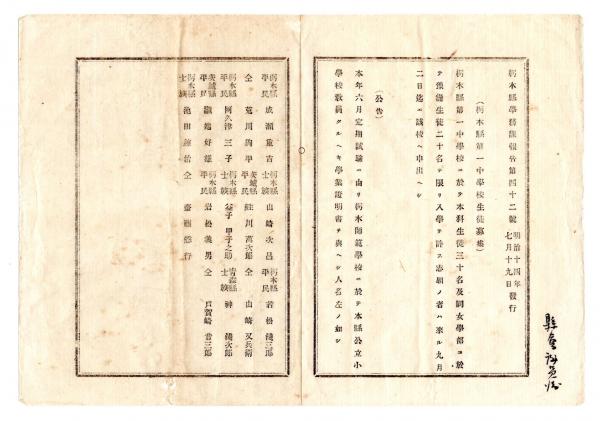 栃木縣學務課報告第四十二號 明治十四年七月十九日 發行
(栃木縣第一中學校生徒募集)
栃木縣第一中學校ニ於テ本科生徒三十名及同女學部ニ於
テ豫備生徒二十名ヲ限リ入學ヲ許ス志願ノ者ハ來ル九月
二日迄ニ該校ヘ申出ヘシ
(公告)
本年六月定期試驗ニ由リ栃木師範學校ニ於テ本縣公立小
學校敎員タルヘキ學業證明書ヲ與ヘシ人名左ノ如シ
栃木縣平民 成瀬重吉 栃木縣士族 山崎次昌 栃木縣平民 若松淺三郎
仝 荒川駒平 茨城縣平民 鮭川萬次郎 仝 山崎又兵衛
栃木縣平民 阿久津三子 栃木縣士族 金子甲子之助 青森縣士族 神淺次郎
茨城縣平民 好雄 栃木縣平民 岩松義男 仝 戸賀崎音三郎
栃木縣士族 池田 仝 齋
縣會